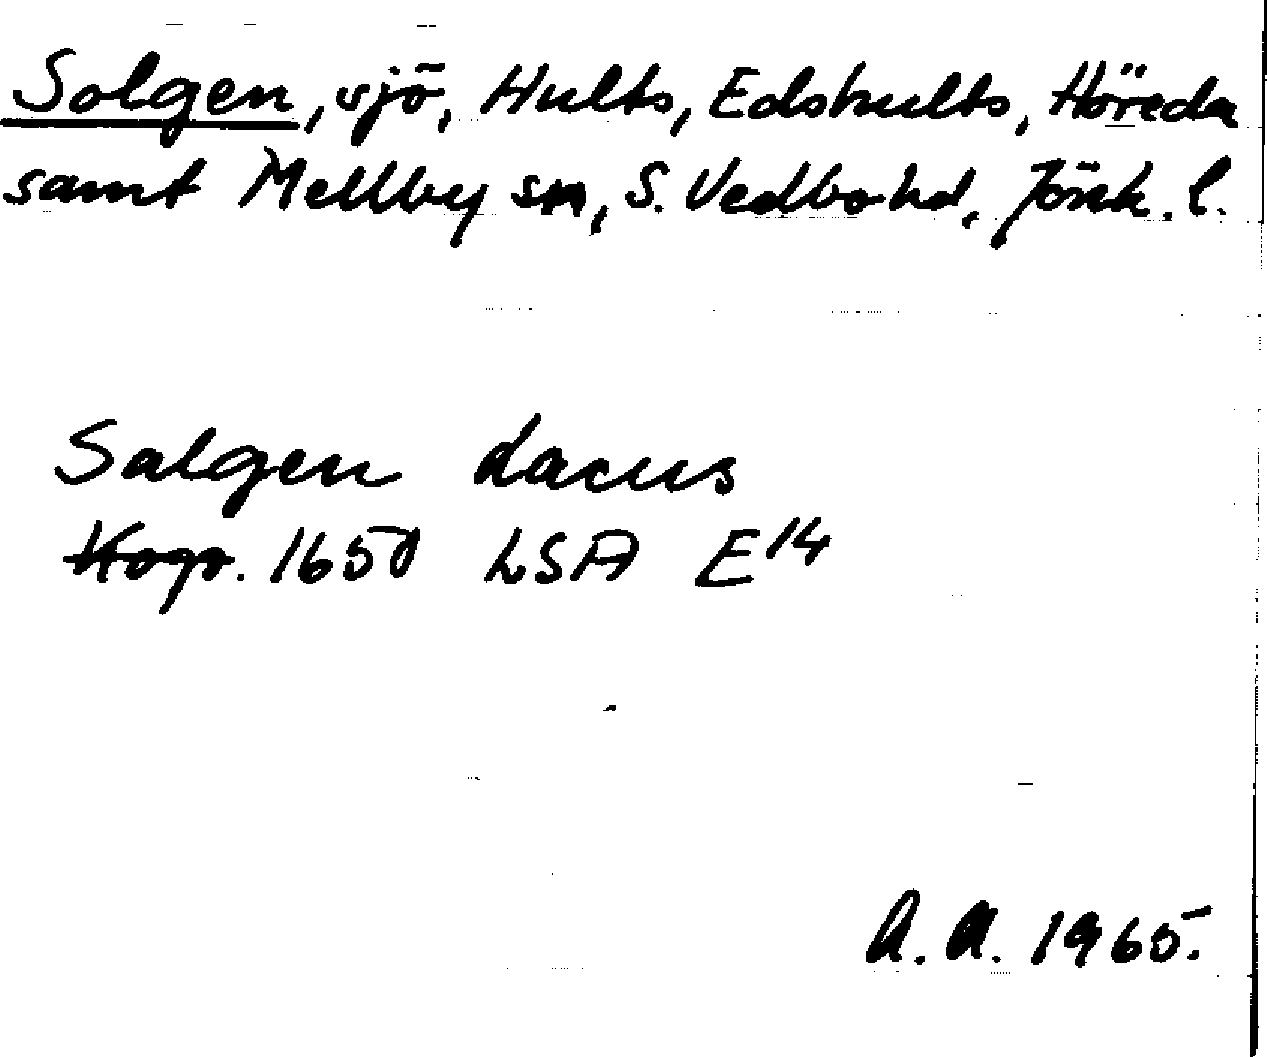 Solgen, sjö, Hults, Edshults, Höreda
samt Mellby sn, S. Vedbo hd, Jönk. l.
Salgen Lacus
Kogr. 1650 LSA E14
A.A. 1965.